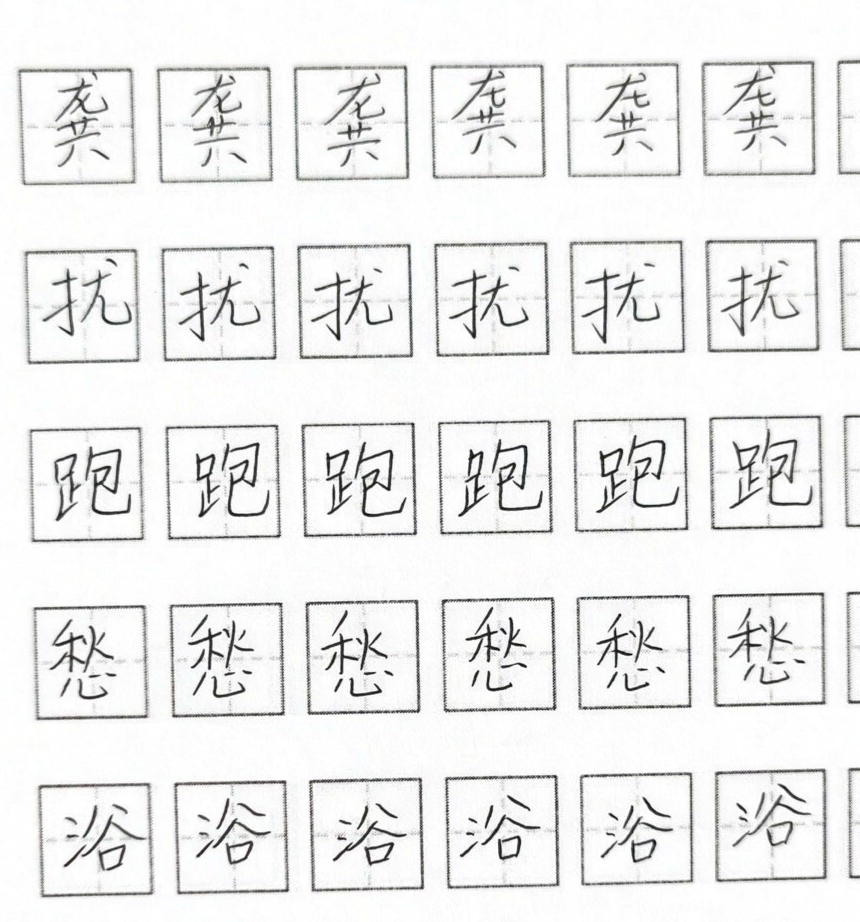 龚龚龚龚龚龚
扰扰扰扰扰扰
跑跑跑跑跑跑
愁愁愁愁愁愁
浴浴浴浴浴浴